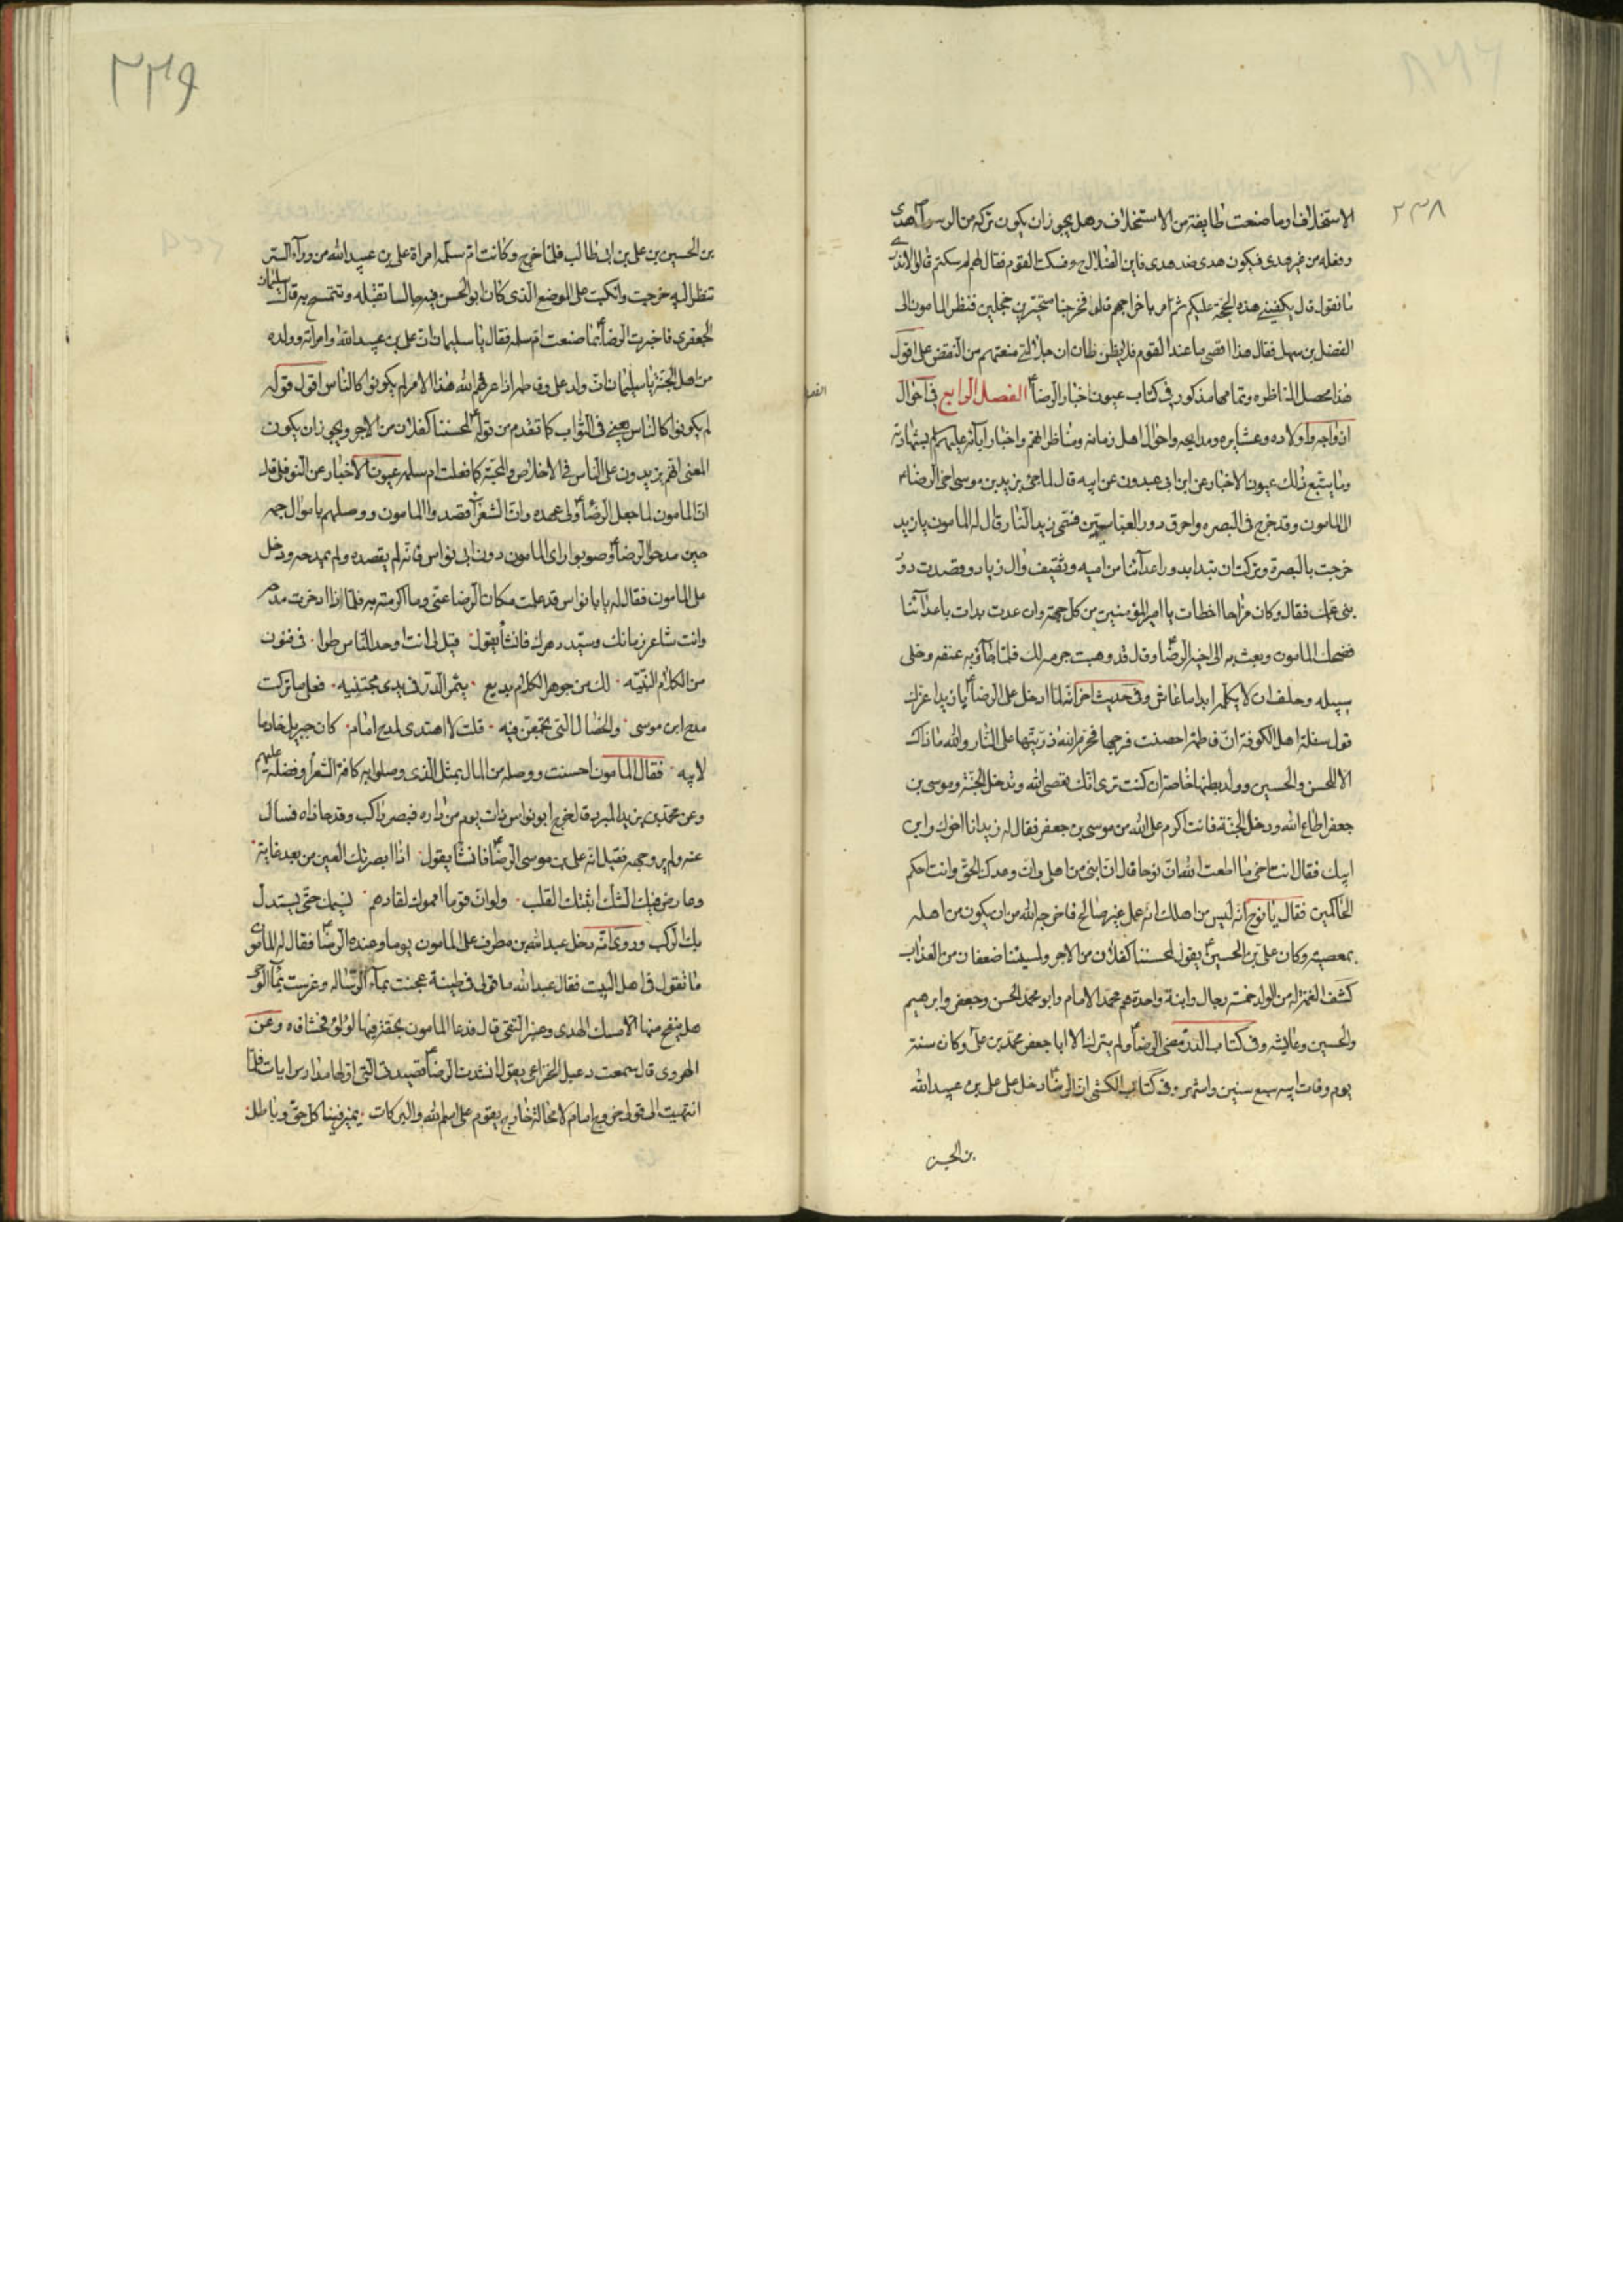 ٢٣٨
الاستخلاف او ما صنعت طايفة من الاستخلاف وهل يجوز ان يكون تركه من الرسول هدى
وفعله من غيره هدى فيكون هدى ضد هدى فاين الضلال ح فسكت القوم فقال لهم لم سكتم قالوا لا ندرى
ما نقول قال يكفينى هذه الحجة عليكم ثم امر باخراجهم قال فخرجنا متحيرين خجلين فنظر المامون الى
الفضل بن سهل فقال هذا اقصى ما عند القوم فلا يظن ظان ان جلالتى منعتهم من النقض على اقول
هذا محصل المناظره وتمامها مذكور فى كتاب عيون اخبار الرضا ع الفصل الرابع فى احوال
ازواجه واولاده وعشايره ومدايحه واحوال اهل زمانه ومناظراتهم واخبار ابائه عليهم السلام بشهادته
وما يتبع ذلك عيون الاخبار عن ابن ابى عبدون عن ابيه قال لما جئ بزيد بن موسى اخى الرضا ع
الى المامون وقد خرج فى البصره واحرق دور العباسيين فسمى زيد النار قال له المامون يا زيد
خرجت بالبصرة وتركت ان تبدا بدور اعدآئنا من اميه وثقيف وال زياد وقصدت دور
بنى عمك فقال وكان مزاحا اخطات يا امير المؤمنين من كل جهة وان عدت بدات باعدآئنا
فضحك المامون وبعث به الى اخيه الرضا وقال قد وهبت جرمه لك فلما جآؤ به عنفه وخلى
سبيله وحلف ان لا يكلمه ابدا ما عاش وفى حديث اخر انه لما ادخل على الرضا ع يا زيد اغرك
قول سفلة اهل الكوفة ان فاطمة احصنت فرجها فحرم الله ذريتها على النار والله ما ذاك
الا للحسن والحسين وولد بطنها خاصة ان كنت ترى انك تعصى الله وتدخل الجنة وموسى بن
جعفر اطاع الله ودخل الجنة فانت اكرم على الله من موسى بن جعفر فقال له زيد انا اخوك وابن
ابيك فقال انت اخى ما اطعت الله ان نوحا قال ان ابنى من اهلى وان وعدك الحق وانت احكم
الحاكمين فقال يا نوح انه ليس من اهلك انه عمل غير صالح فاخرجه الله من ان يكون من اهله
بمعصيته وكان على بن الحسين ع يقول لمحسننا كفلان من الاجر ولمسيئنا ضعفان من العذاب
كشف الغمة له من الولد خمسة رجال وابنة واحدة هم محمد الامام وابو محمد الحسن وجعفر وابرهيم
والحسين وعايشه وفى كتاب الدر مضى الرضا ع ولم يترك الا ابا جعفر محمد بن على وكان سنه
يوم وفات ابيه سبع سنين واشهر وفى كتاب الكشى ان الرضا ع دخل على على بن عبيد الله
بن الحسين
٢٣٩
بن الحسين بن على بن ابى طالب فلما خرج وكانت ام سلمه امراة على بن عبيد الله من ورآء الستر
تنظر اليه خرجت وانكبت على الموضع الذى كان ابو الحسن فيه جالسا تقبله وتتمسح به قال سليمان
الجعفرى فاخبرت الرضا ع بما صنعت ام سلمه فقال يا سليمان ان على بن عبيد الله وامراته وولده
من اهل الجنة يا سليمان ان ولد على وفاطمه اذا عرفهم الله هذا الامر لم يكونوا كالناس اقول قوله
لم يكونوا كالناس يعنى فى الثواب كما تقدم من قوله ع لمحسننا كفلان من الاجر ويجوز ان يكون
المعنى انهم يزيدون على الناس فى الاخلاص والمحبة كما فعلت ام سلمه عيون الاخبار عن النوفلى قال
ان المامون لما جعل الرضا ع ولى عهده وان الشعرآء قصدوا المامون ووصلهم باموال جمه
حين مدحوا الرضا ع وصوبوا راى المامون دون ابى نواس فانه لم يقصده ولم يمدحه ودخل
على المامون فقال له يا با نواس قد علمت مكان الرضا عنى وما اكرمته به فلماذا اخرت مدحه
وانت شاعر زمانك وسيد دهرك فانشا يقول قيل لى انت اوحد الناس طرا فى فنون
من الكلام النبيه لك من جوهر الكلام بديع يثمر الدر فى يدى مجتنيه فعلى ما تركت
مدح ابن موسى والخصال التى تجمعن فيه قلت لا اهتدى لمدح امام كان جبريل خادما
لابيه فقال المامون احسنت ووصله من المال بمثل الذى وصل به كافة الشعرآ وفضله عليهم
وعن محمد بن يزيد المبرد قال خرج ابو نواس ذات يوم من داره فبصر براكب وقد حاذاه فسال
عنه ولم ير وجهه فقيل انه على بن موسى الرضا ع فانشا يقول اذا ابصرتك العين من بعد غاية
وعارض فيك الشك اثبتك القلب ولو ان قوما امموك لقادهم نسيمك حتى يستدل
بك الركب وروى انه دخل عبد الله بن مطرف على المامون يوما وعنده الرضا ع فقال له المامون
ما تقول فى اهل البيت فقال عبد الله ما قولى فى طينة عجنت بمآء الرساله وغرست بمآء الوحى
هل ينفح منها الا مسك الهدى وعنبر التقى قال فدعا المامون بحقة فيها لؤلؤ فحشا فاه وعن
الهروى قال سمعت دعبل الخزاعى يقول انشدت الرضا ع قصيدتى التى اولها مدارس ايات فلما
انتهيت الى قولى خروج امام لا محالة خارج يقوم على اسم الله والبركات يميز فينا كل حق وباطل